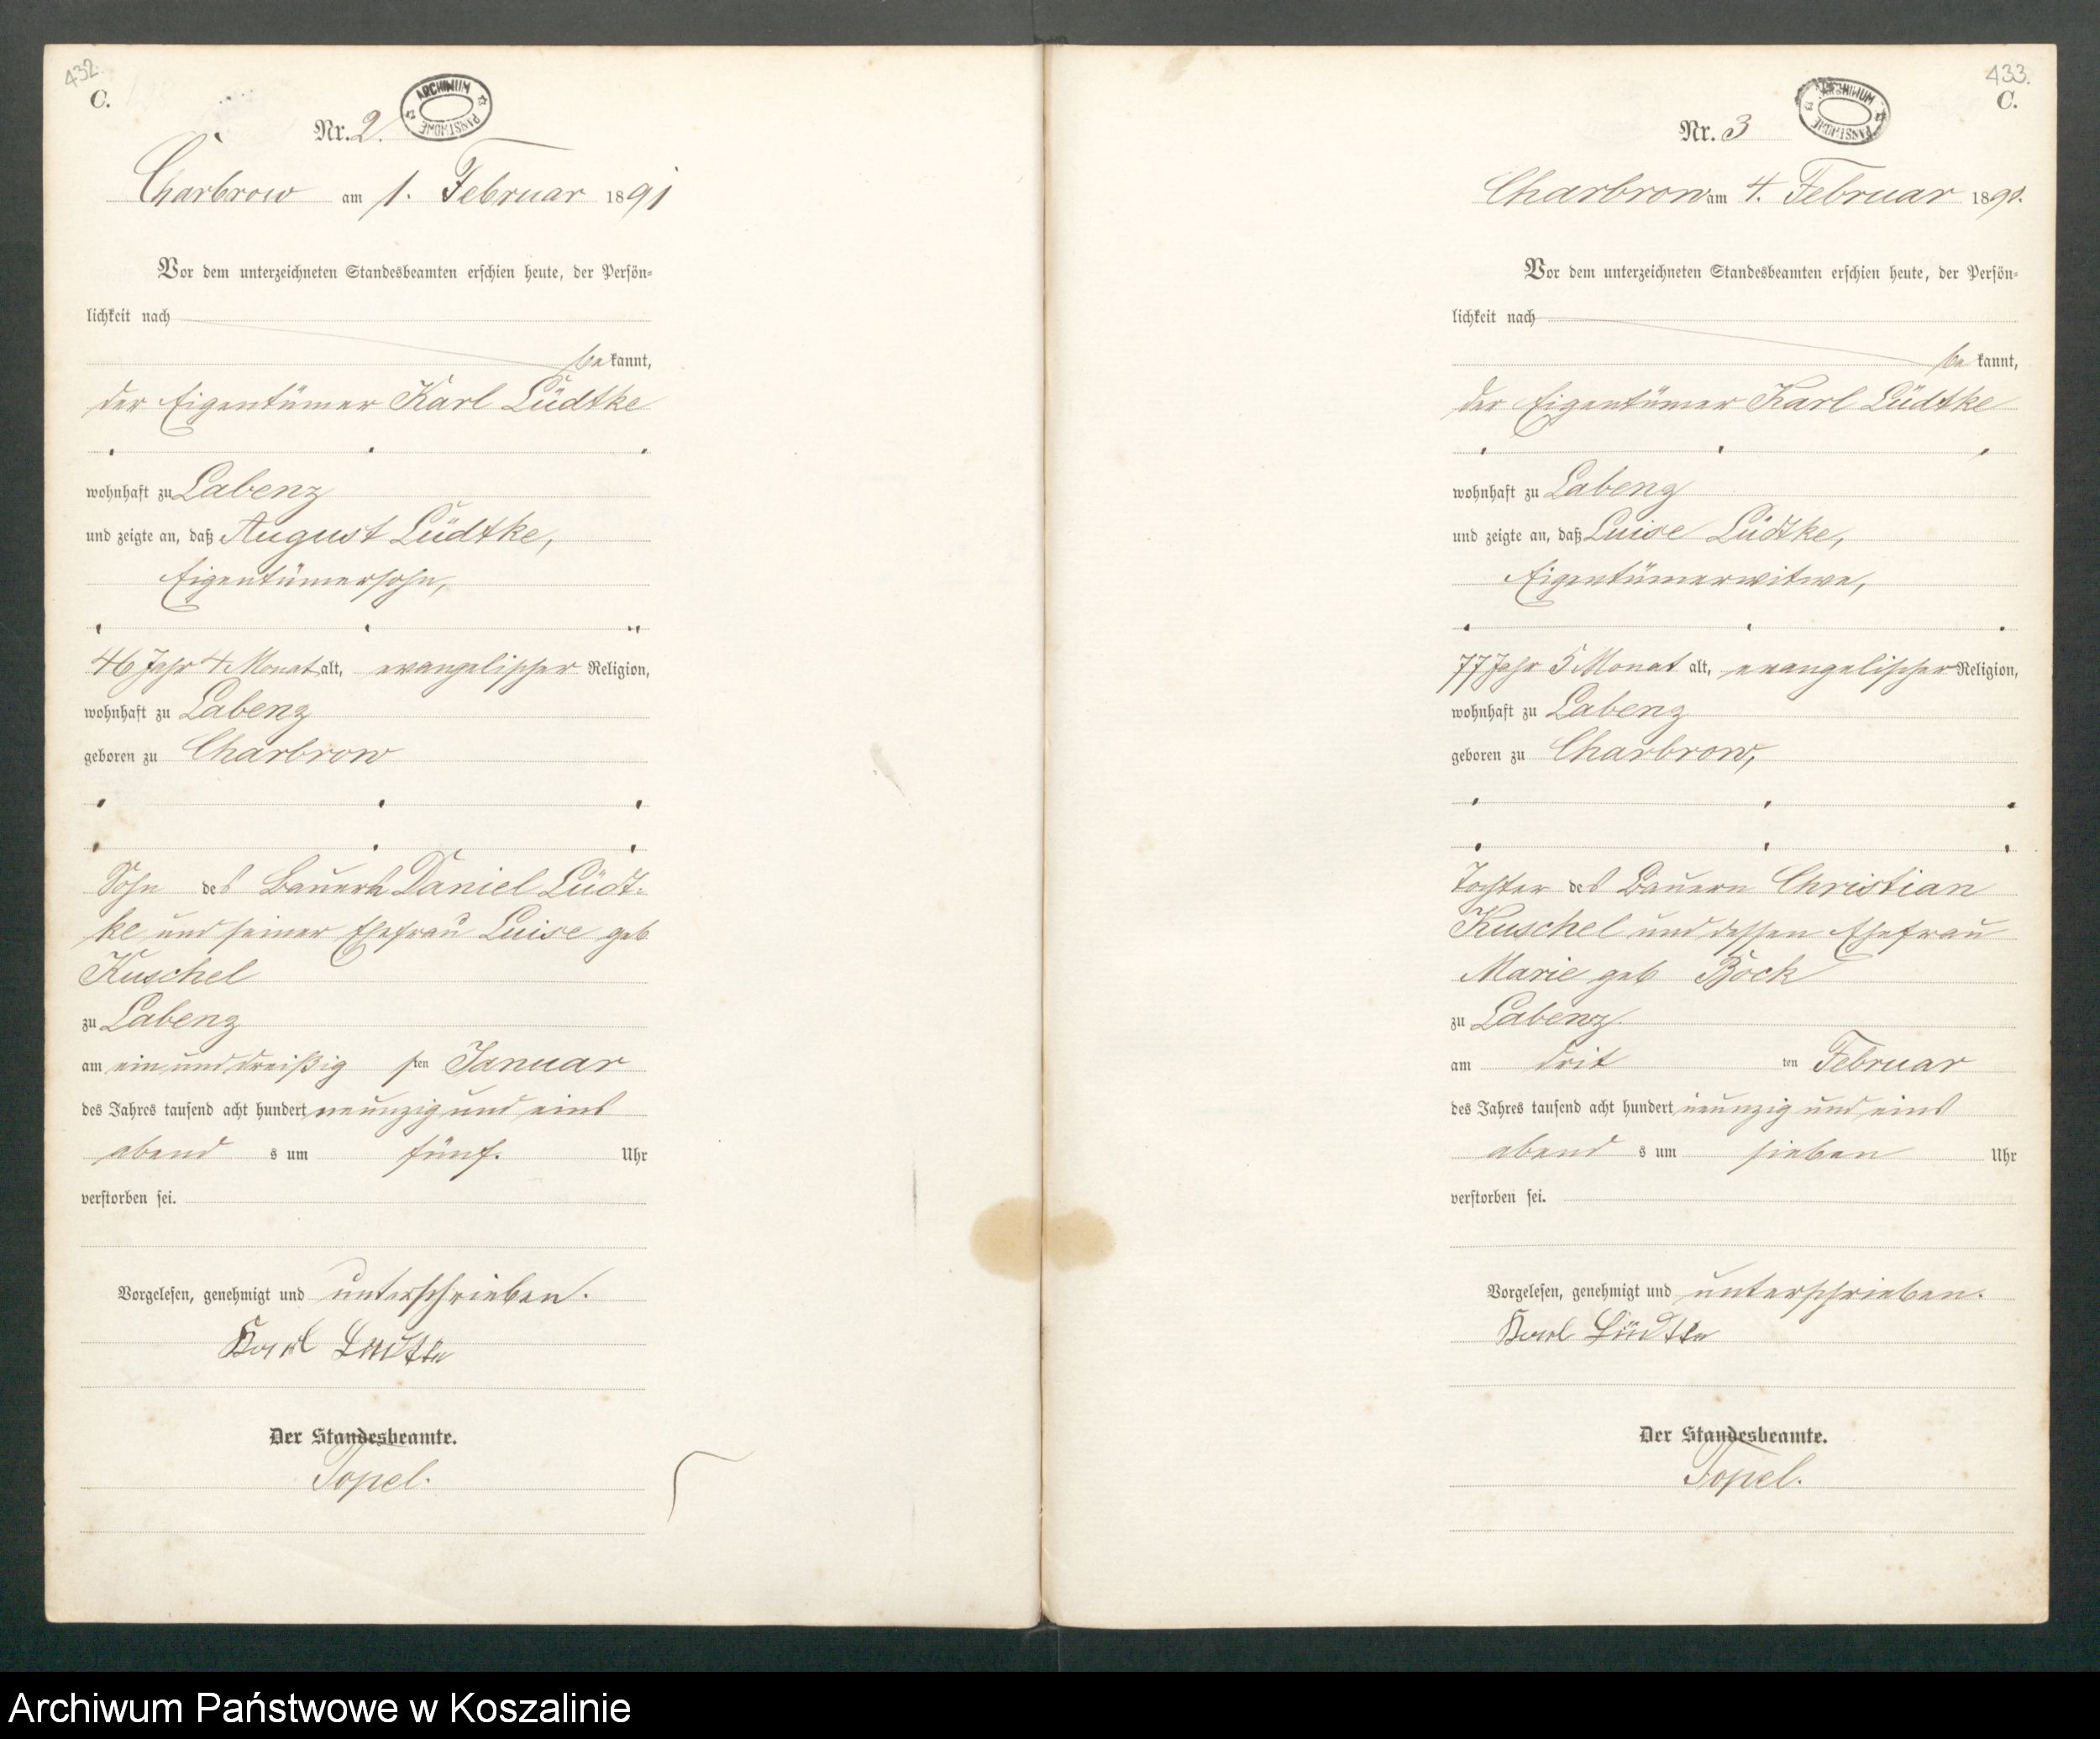 432.
C.
ARCHIWUM PAŃSTWOWE
Nr. 2.
Charbrow am 1. Februar 1891
Vor dem unterzeichneten Standesbeamten erschien heute, der Persön-
lichkeit nach
be kannt,
der Eigentümer Karl Lüdtke
wohnhaft zu Labenz
und zeigte an, daß August Lüdtke,
Eigentümersohn,
46 Jahr 4 Monat alt, evangelischer Religion,
wohnhaft zu Labenz
geboren zu Charbrow
Sohn des Bauern Daniel Lüdt-
ke und seiner Ehefrau Luise geb
Kuschel
zu Labenz
am ein und dreißig sten Januar
des Jahres tausend acht hundert neunzig und eins
abend s um fünf. Uhr
verstorben sei.
Vorgelesen, genehmigt und unterschrieben.
Karl Lüdtke
Der Standesbeamte.
Topel.
433.
C.
ARCHIWUM PAŃSTWOWE
Nr. 3
Charbrow am 4. Februar 1891.
Vor dem unterzeichneten Standesbeamten erschien heute, der Persön-
lichkeit nach
be kannt,
der Eigentümer Karl Lüdtke
wohnhaft zu Labenz
und zeigte an, daß Luise Lüdtke,
Eigentümerwitwe,
77 Jahr 5 Monat alt, evangelischer Religion,
wohnhaft zu Labenz
geboren zu Charbrow,
Tochter des Bauern Christian
Kuschel und dessen Ehefrau
Marie geb Bock
zu Labenz.
am drit ten Februar
des Jahres tausend acht hundert neunzig und eins
abend s um sieben Uhr
verstorben sei.
Vorgelesen, genehmigt und unterschrieben.
Karl Lüdtke
Der Standesbeamte.
Topel.
Archiwum Państwowe w Koszalinie